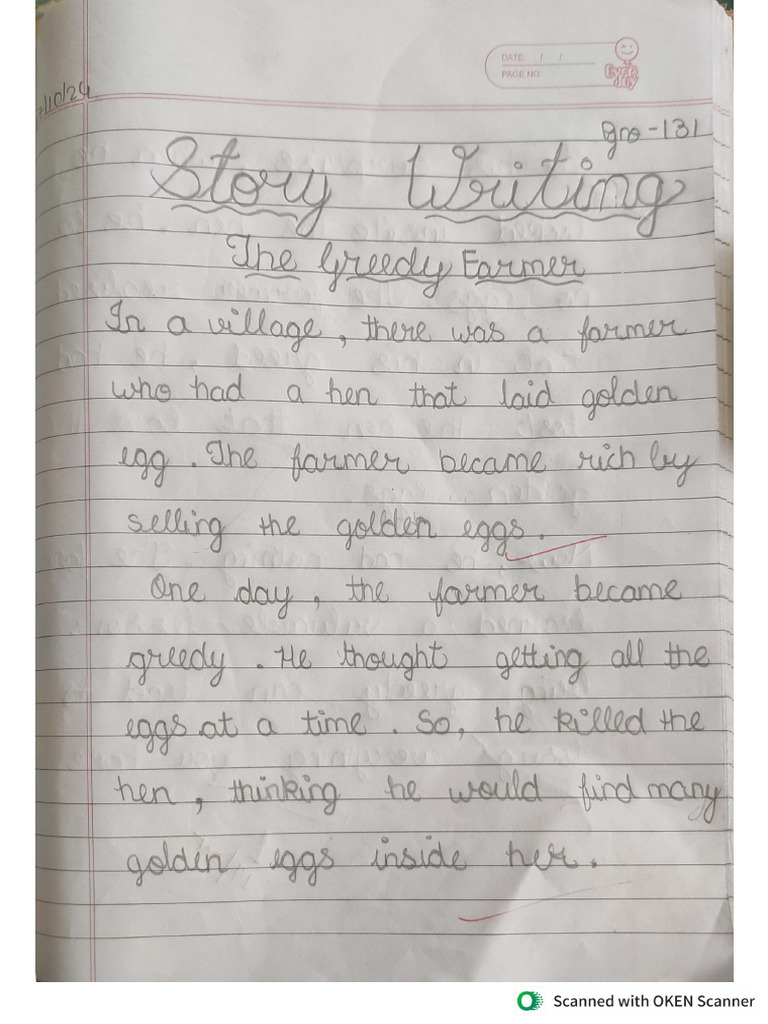 DATE: / /
PAGE NO.
/10/24
Pno-131
Story Writing
The Greedy Farmer
In a village, there was a farmer
who had a hen that laid golden
egg. The farmer became rich by
selling the golden eggs.
One day, the farmer became
greedy. He thought getting all the
eggs at a time. So, he killed the
hen, thinking he would find many
golden eggs inside her.
Scanned with OKEN Scanner